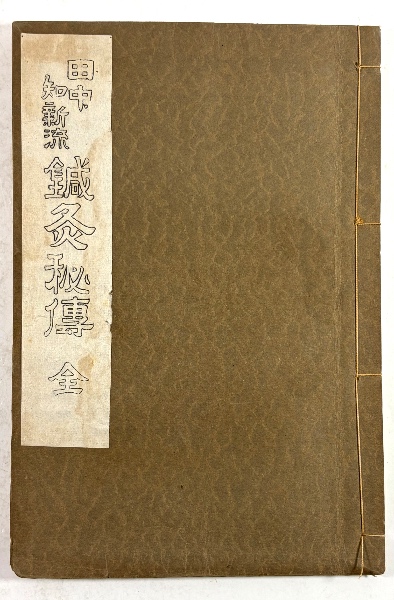 田中
知新流
鍼灸秘傳 全